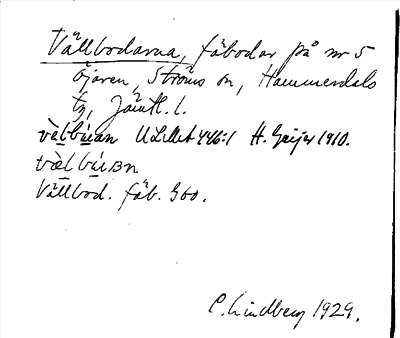 Vällbodarna, fäbodar på nr 5
Öjaren, Ströms sn, Hammerdals
tg, Jämtl. l.
vὲlbúan ULMA 446:1 H. Geijer 1910.
vælbúᴇn
Vällbod. fäb. Gso.
C. Lindberg 1929.